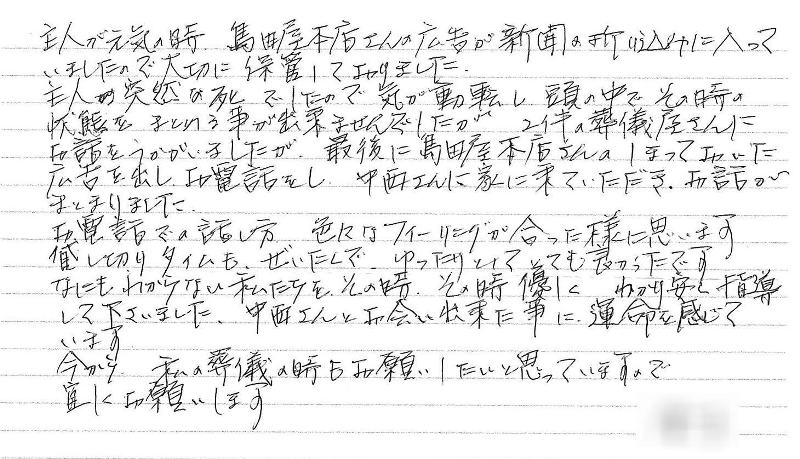 主人が元気の時、島田屋本店さんの広告が新聞の折り込みに入って
いましたので大切に保管しておりました。
主人の突然な死でしたので気が動転し頭の中でその時の
状態をまとめる事が出来ませんでしたが、2件の葬儀屋さんに
お話をうかがいましたが、最後に島田屋本店さんのしまっておいた
広告を出しお電話をし、中西さんに家に来ていただき、お話が
まとまりました。
お電話での話し方、色々なフィーリングが合った様に思います
貸し切りタイムも、ぜいたくで、ゆったりとしてとても良かったです
なにもわからない私たちを、その時、その時優しく、わかり安く指導
して下さいました、中西さんとお会い出来た事に運命を感じて
います
今から、私の葬儀の時もお願いしたいと思っていますので
宜しくお願いします